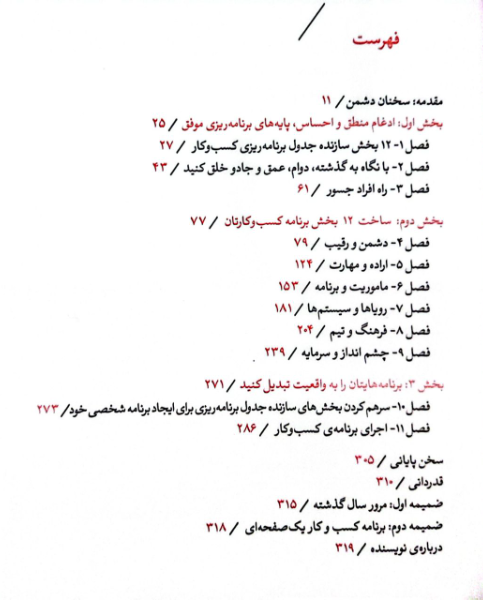 فهرست
مقدمه: سخنان دشمن / ۱۱
بخش اول: ادغام منطق و احساس، پایه‌های برنامه‌ریزی موفق / ۲۵
فصل ۱- ۱۲ بخش سازنده جدول برنامه‌ریزی کسب‌وکار / ۲۷
فصل ۲- با نگاه به گذشته، دوام، عمق و جادو خلق کنید / ۴۳
فصل ۳- راه افراد جسور / ۶۱
بخش دوم: ساخت ۱۲ بخش برنامه کسب‌وکارتان / ۷۷
فصل ۴- دشمن و رقیب / ۷۹
فصل ۵- اراده و مهارت / ۱۲۴
فصل ۶- ماموریت و برنامه / ۱۵۳
فصل ۷- رویاها و سیستم‌ها / ۱۸۱
فصل ۸- فرهنگ و تیم / ۲۰۴
فصل ۹- چشم انداز و سرمایه / ۲۳۹
بخش ۳: برنامه‌هایتان را به واقعیت تبدیل کنید / ۲۷۱
فصل ۱۰- سرهم کردن بخش‌های سازنده جدول برنامه‌ریزی برای ایجاد برنامه شخصی خود/ ۲۷۳
فصل ۱۱- اجرای برنامه‌ی کسب‌وکار / ۲۸۶
سخن پایانی / ۳۰۵
قدردانی / ۳۱۰
ضمیمه اول: مرور سال گذشته / ۳۱۵
ضمیمه دوم: برنامه کسب و کار یک‌صفحه‌ای / ۳۱۸
درباره‌ی نویسنده / ۳۱۹